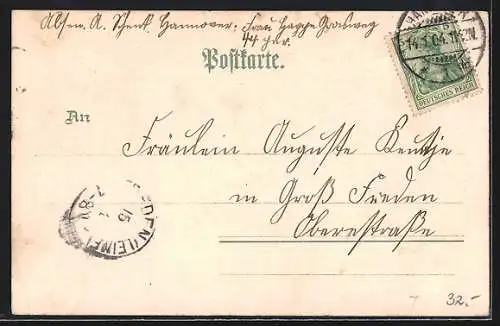 Absen. A. Schenk. Hannover. Frau Happe Grasweg
44 ptr.
Postkarte.
HANNOVER
14.1.04. 11-12N.
DEUTSCHES REICH
An
Fräulein Auguste Kentje
in Groß Freden
Oberestraße
FREDEN (LEINE)
15
7-8V
32.-